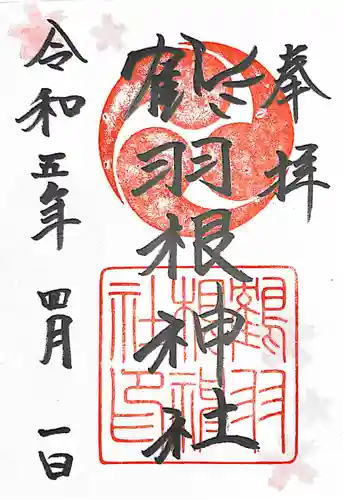 奉拝
鶴羽根神社
鶴羽根神社印
令和五年四月一日